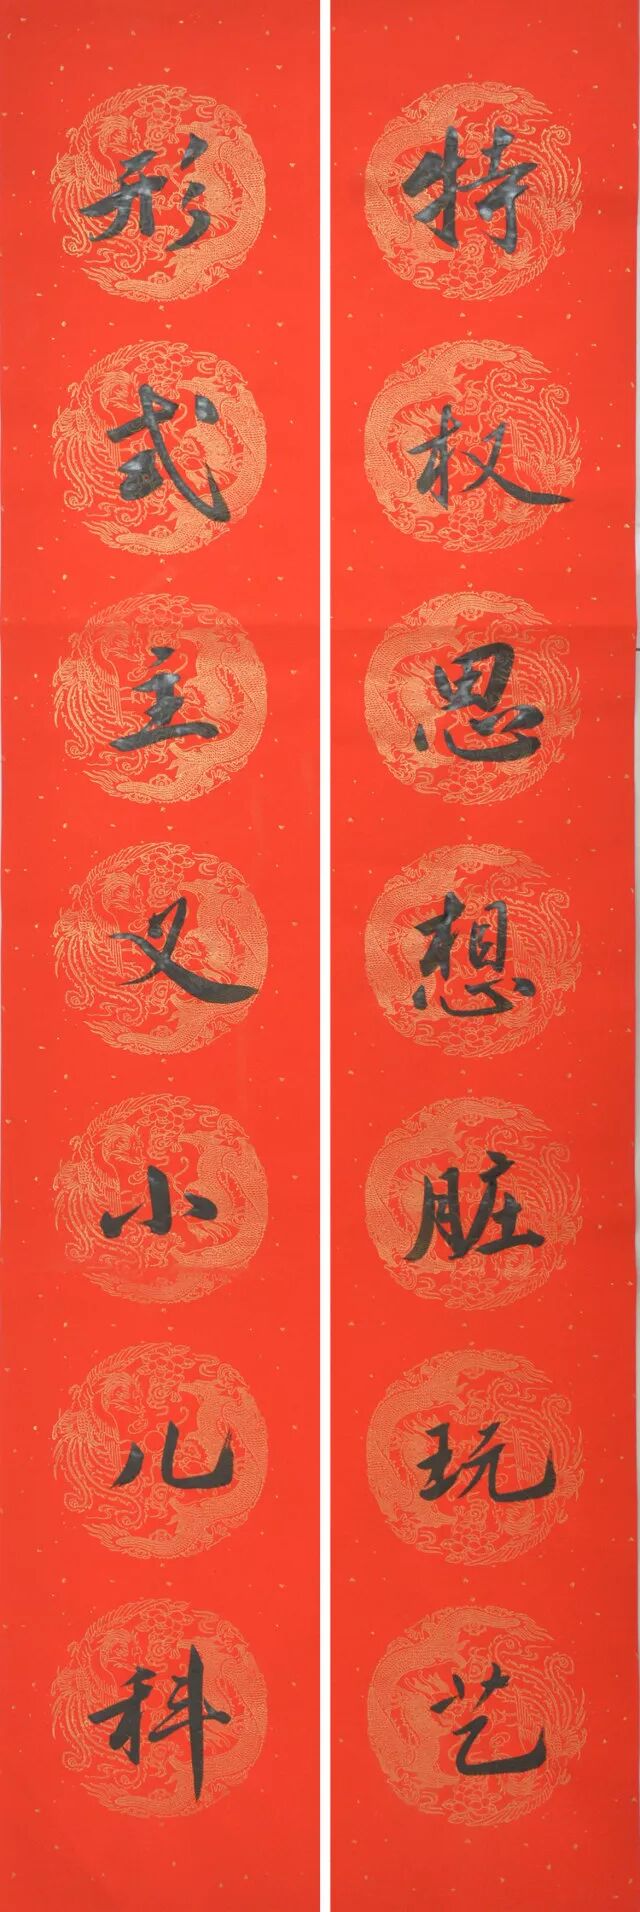 特权思想脏玩艺
形式主义小儿科